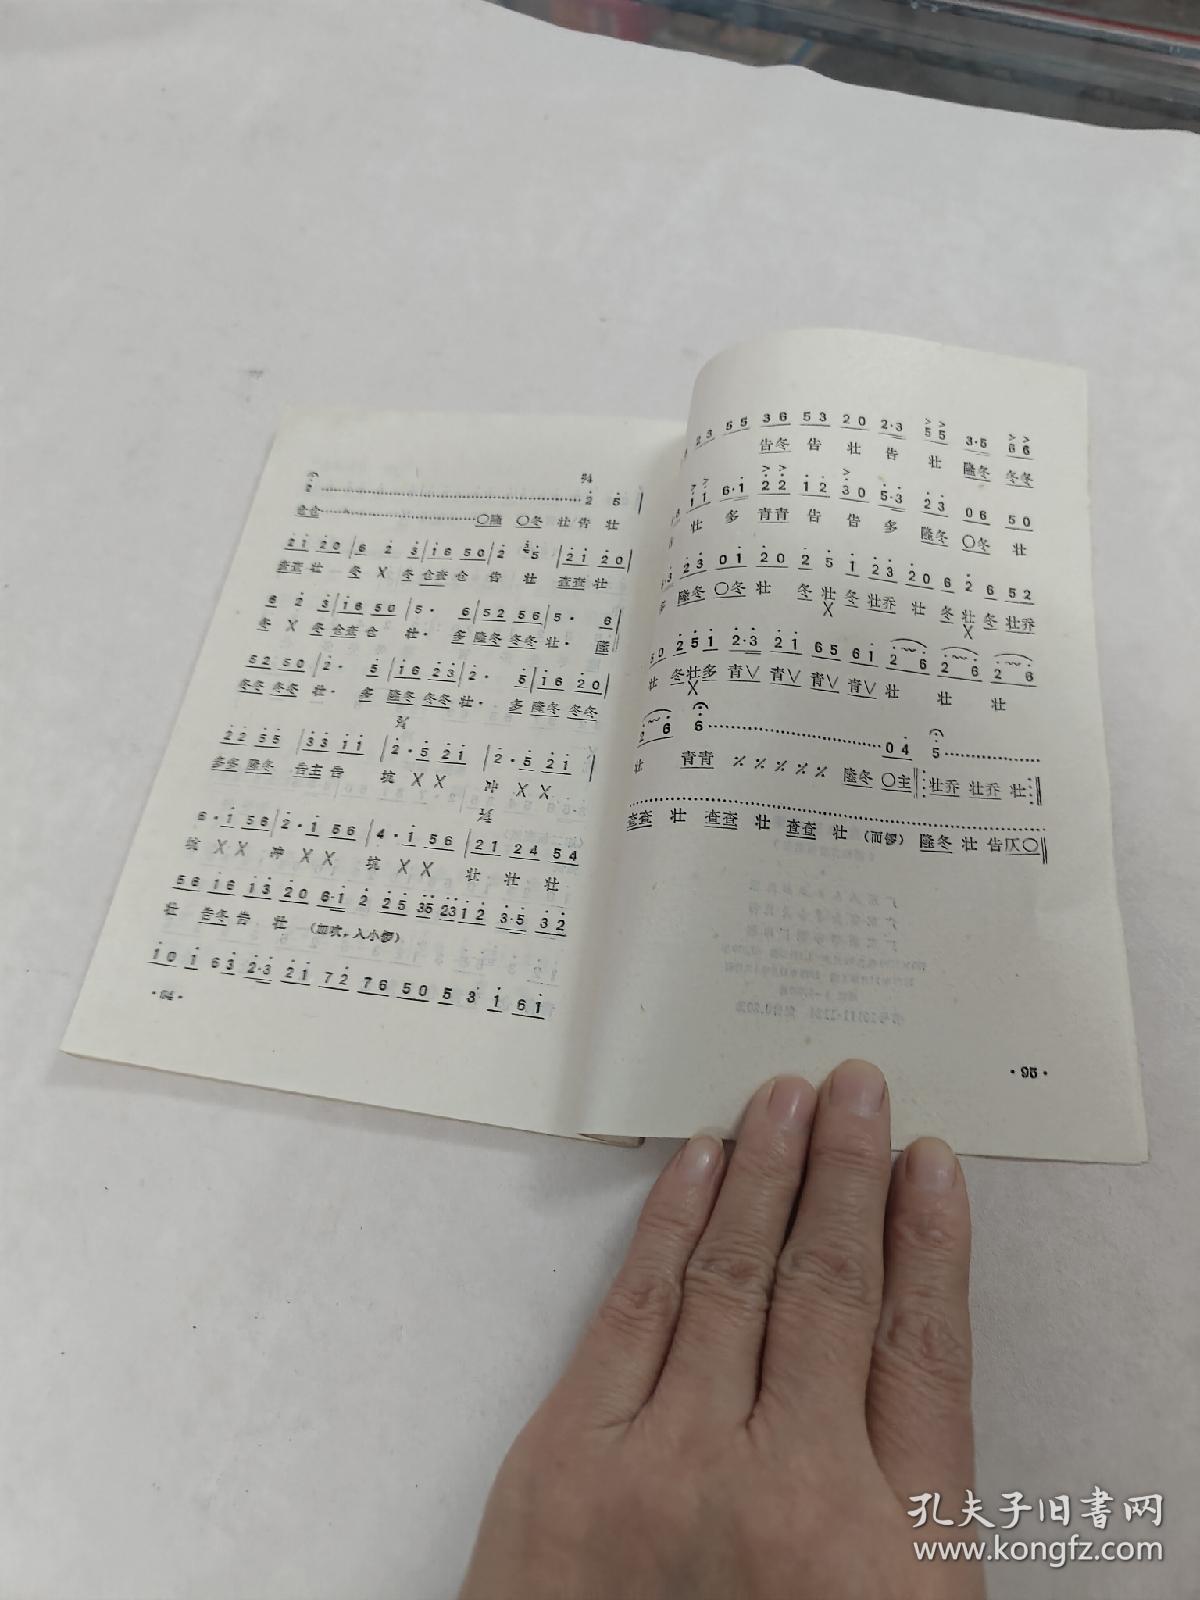 2 5
仓仓 〇隆 〇冬 壮 告 壮
2 1 2 0 | 6 2 3 | 1 6 5 0 | 2 5 | 2 1 2 0 |
查查 壮 冬 X 冬 仓查 仓 告 壮 查查 壮
6 2 3 | 1 6 5 0 | 5 · 6 | 5 2 5 6 | 5 · 6 |
冬 X 冬 仓查 仓 壮 · 多 隆冬 冬冬 壮 · 隆
5 2 5 0 | 2 · 5 | 1 6 2 3 | 2 · 5 | 1 6 2 0 |
冬冬 冬冬 壮 · 多 隆冬 冬冬 壮 · 多 隆冬 冬冬
2 2 5 5 | 3 3 1 1 | 2 · 5 2 1 | 2 · 5 2 1 |
多多 隆冬 告主 告 坑 X X 冲 X X
6 · 1 5 6 | 2 · 1 5 6 | 4 · 1 5 6 | 2 1 2 4 5 4
坑 X X 冲 X X 坑 X X 壮 壮 壮
5 6 1 6 1 3 2 0 6 · 1 2 2 5 3 5 2 3 1 2 3 · 5 3 2
壮 告冬 告 壮 (如吹,入小锣)
1 0 1 6 3 2 · 3 2 1 7 2 7 6 5 0 5 3 1 6 1
· 94 ·
2 3 5 5 3 6 5 3 2 0 2 · 3 5 5 3 · 5 6 6
告冬 告 壮 告 壮 隆冬 冬冬
1 1 6 · 1 2 2 1 2 3 0 5 · 3 2 3 0 6 5 0
壮 多 青青 告 告 多 隆冬 〇冬 壮
2 3 0 1 2 0 2 5 1 2 3 2 0 6 2 6 5 2
多 隆冬 〇冬 壮 冬 壮 冬 壮乔 壮 冬 壮 冬 壮乔
X X
5 0 2 5 1 2 · 3 2 1 6 5 6 1 2 6 2 6 2 6
壮 冬壮多 青V 青V 青V 青V 壮 壮 壮
X
2 6 6 0 4 5
壮 青青 隆冬 〇主 壮乔 壮乔 壮
查查 壮 查查 壮 查查 壮 (而锣) 隆冬 壮 告仄〇
· 95 ·
孔夫子旧书网
www.kongfz.com